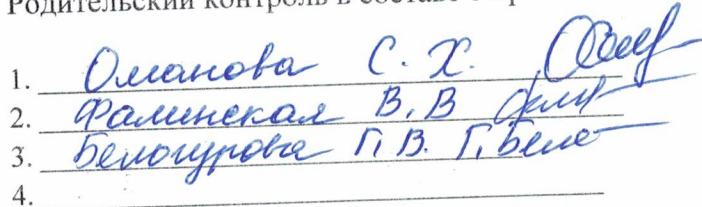 Родительский контроль в составе
1. Оманова С. Х.
2. Фалинская В. В
3. Белогурова Г. В. Г. Бело
4.